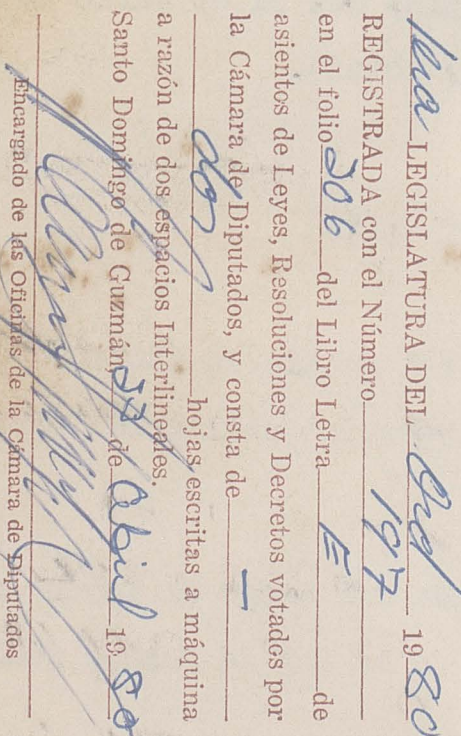 1era LEGISLATURA DEL Ord 1980
REGISTRADA con el Número 197
en el folio 206 del Libro Letra E de
asientos de Leyes, Resoluciones y Decretos votados por
la Cámara de Diputados, y consta de —
dos hojas escritas a máquina
a razón de dos espacios Interlineales.
Santo Domingo de Guzmán, 27 de Abril 1980
Encargado de las Oficinas de la Cámara de Diputados